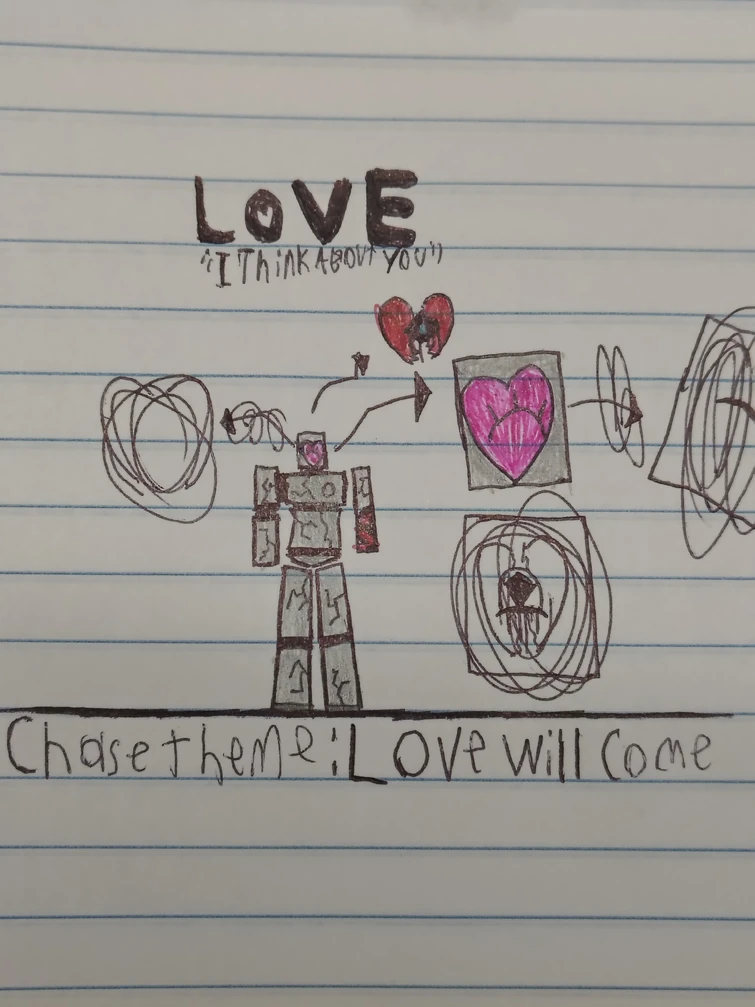 LOVE
"I Think ABOUT YOU"
Chase theme: Love will Come